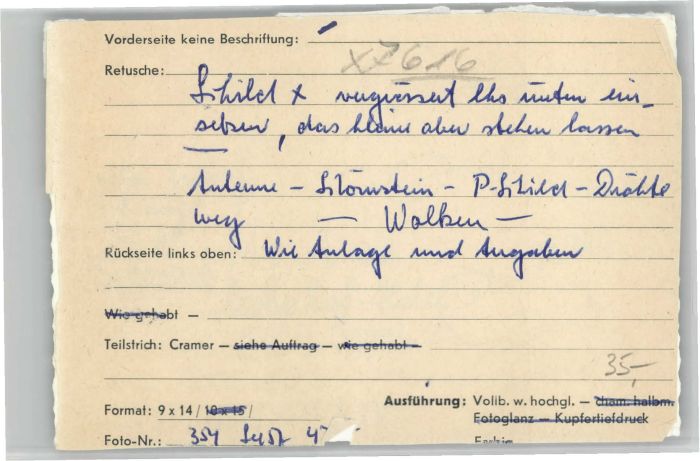 Vorderseite keine Beschriftung:
XZ616
Retusche:
Schild x vergrössert lks unten ein-
setzen, das kleine aber stehen lassen
Antenne - - P-Schild - Drähte
weg — Wolken —
Rückseite links oben: Wie Anlage und Angaben
Wie gehabt —
Teilstrich: Cramer — siehe Auftrag — wie gehabt —
35,-
Ausführung: Vollb. w. hochgl. — cham. halbm.
Format: 9 x 14 / 10 x 15 /
Fotoglanz — Kupfertiefdruck
Foto-Nr.: 354